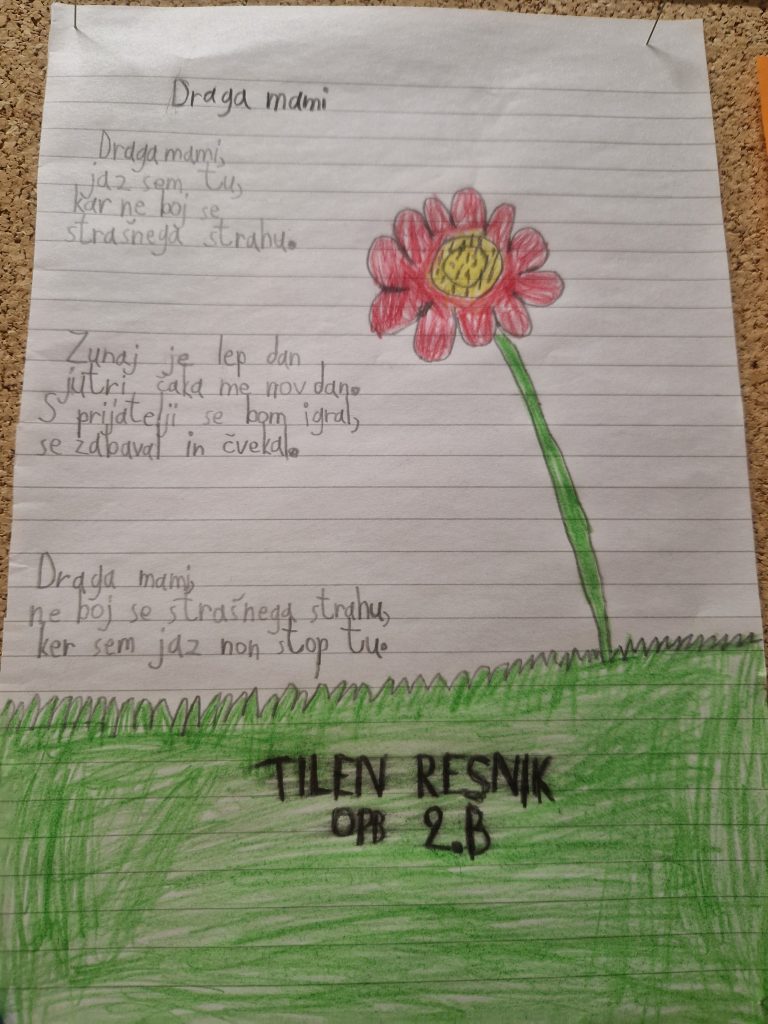 Draga mami
Draga mami,
jaz sem tu,
kar ne boj se
strašnega strahu.
Zunaj je lep dan
jutri čaka me nov dan.
S prijatelji se bom igral,
se zabaval in čvekal.
Draga mami,
ne boj se strašnega strahu,
ker sem jaz non stop tu.
TILEN RESNIK
OPB 2.B